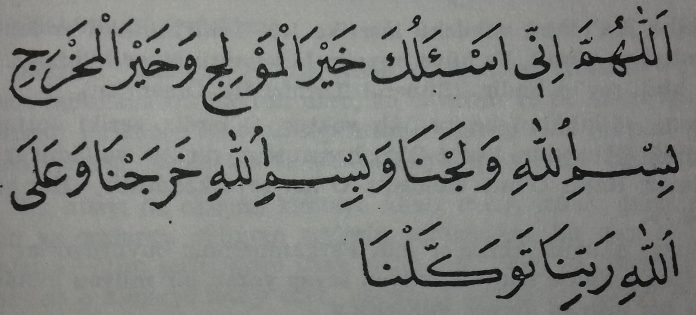 اَللّٰهُمَّ اِنِّى اَسْئَلُكَ خَيْرَ الْمَوْلِجِ وَخَيْرَ الْمَخْرَجِ
بِسْمِ اللّٰهِ وَلَجْنَا وَبِسْمِ اللّٰهِ خَرَجْنَا وَعَلَى
اللّٰهِ رَبِّنَا تَوَكَّلْنَا